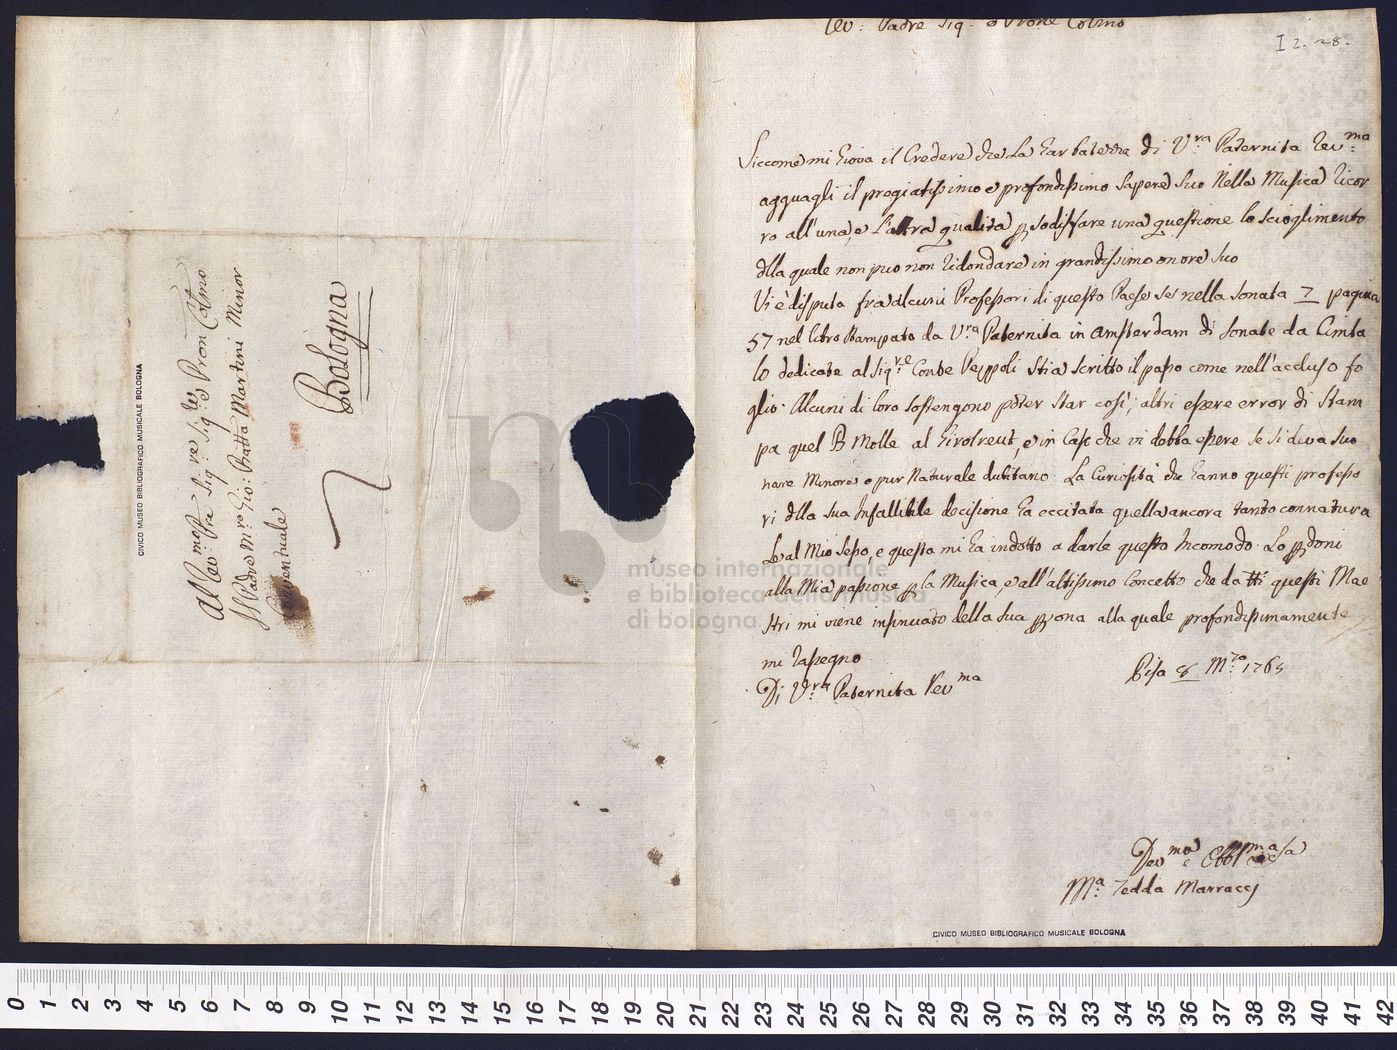 Rev: Padre Sig.e e Prone Colmo
I 2. 28.
Siccome mi giova il Credere che La Garbatezza di V.ra Paternita Rev:ma
agguagli il pregiatissimo e profondissimo sapere suo Nella Musica ricor
ro all'una, e l'altra qualita p sodisfare una questione lo scioglimento
dlla quale non può non ridondare in grandissimo onore suo
Vi è disputa fra alcuni Professori di questo Paese se nella sonata 7 pagina
57 nel libro stampato da V.ra Paternita in Amsterdam di sonate da Cimba
lo dedicate al Sig.re Conte Peppoli stia scritto il passo come nell'accluso fo
glio. Alcuni di loro sostengono poter star così; altri essere error di stam
pa quel B Molle al Gisolreut, e in caso che vi debba essere se si deva suo
nare Minore, o pur Naturale dubitano. La Curiosità che hanno questi professo
ri dlla sua Infallibile decisione ha eccitata quella ancora tanto connatura
le al Mio sesso, e questa mi ha indotto a darle questo Incomodo. Lo pdoni
alla Mia passione p la Musica, e all'altissimo Concetto che da tti questi Mae
stri mi viene insinuato della sua psona alla quale profondissimamente
mi rassegno
Di V.ra Paternita Rev.ma
Pisa 8 M:zo 1765
Dev.ma e Obbl.ma
M:a Tedda Marracci
Al
Rev:mo Pre
Fra Sig: Sig: e Pron Colmo
Il Padre M:ro Gio: Batta Martini Minor
Conventuale
Bologna
CIVICO MUSEO BIBLIOGRAFICO MUSICALE BOLOGNA
CIVICO MUSEO BIBLIOGRAFICO MUSICALE BOLOGNA
museo internazionale
e biblioteca della musica
di bologna
0 1 2 3 4 5 6 7 8 9 10 11 12 13 14 15 16 17 18 19 20 21 22 23 24 25 26 27 28 29 30 31 32 33 34 35 36 37 38 39 40 41 42